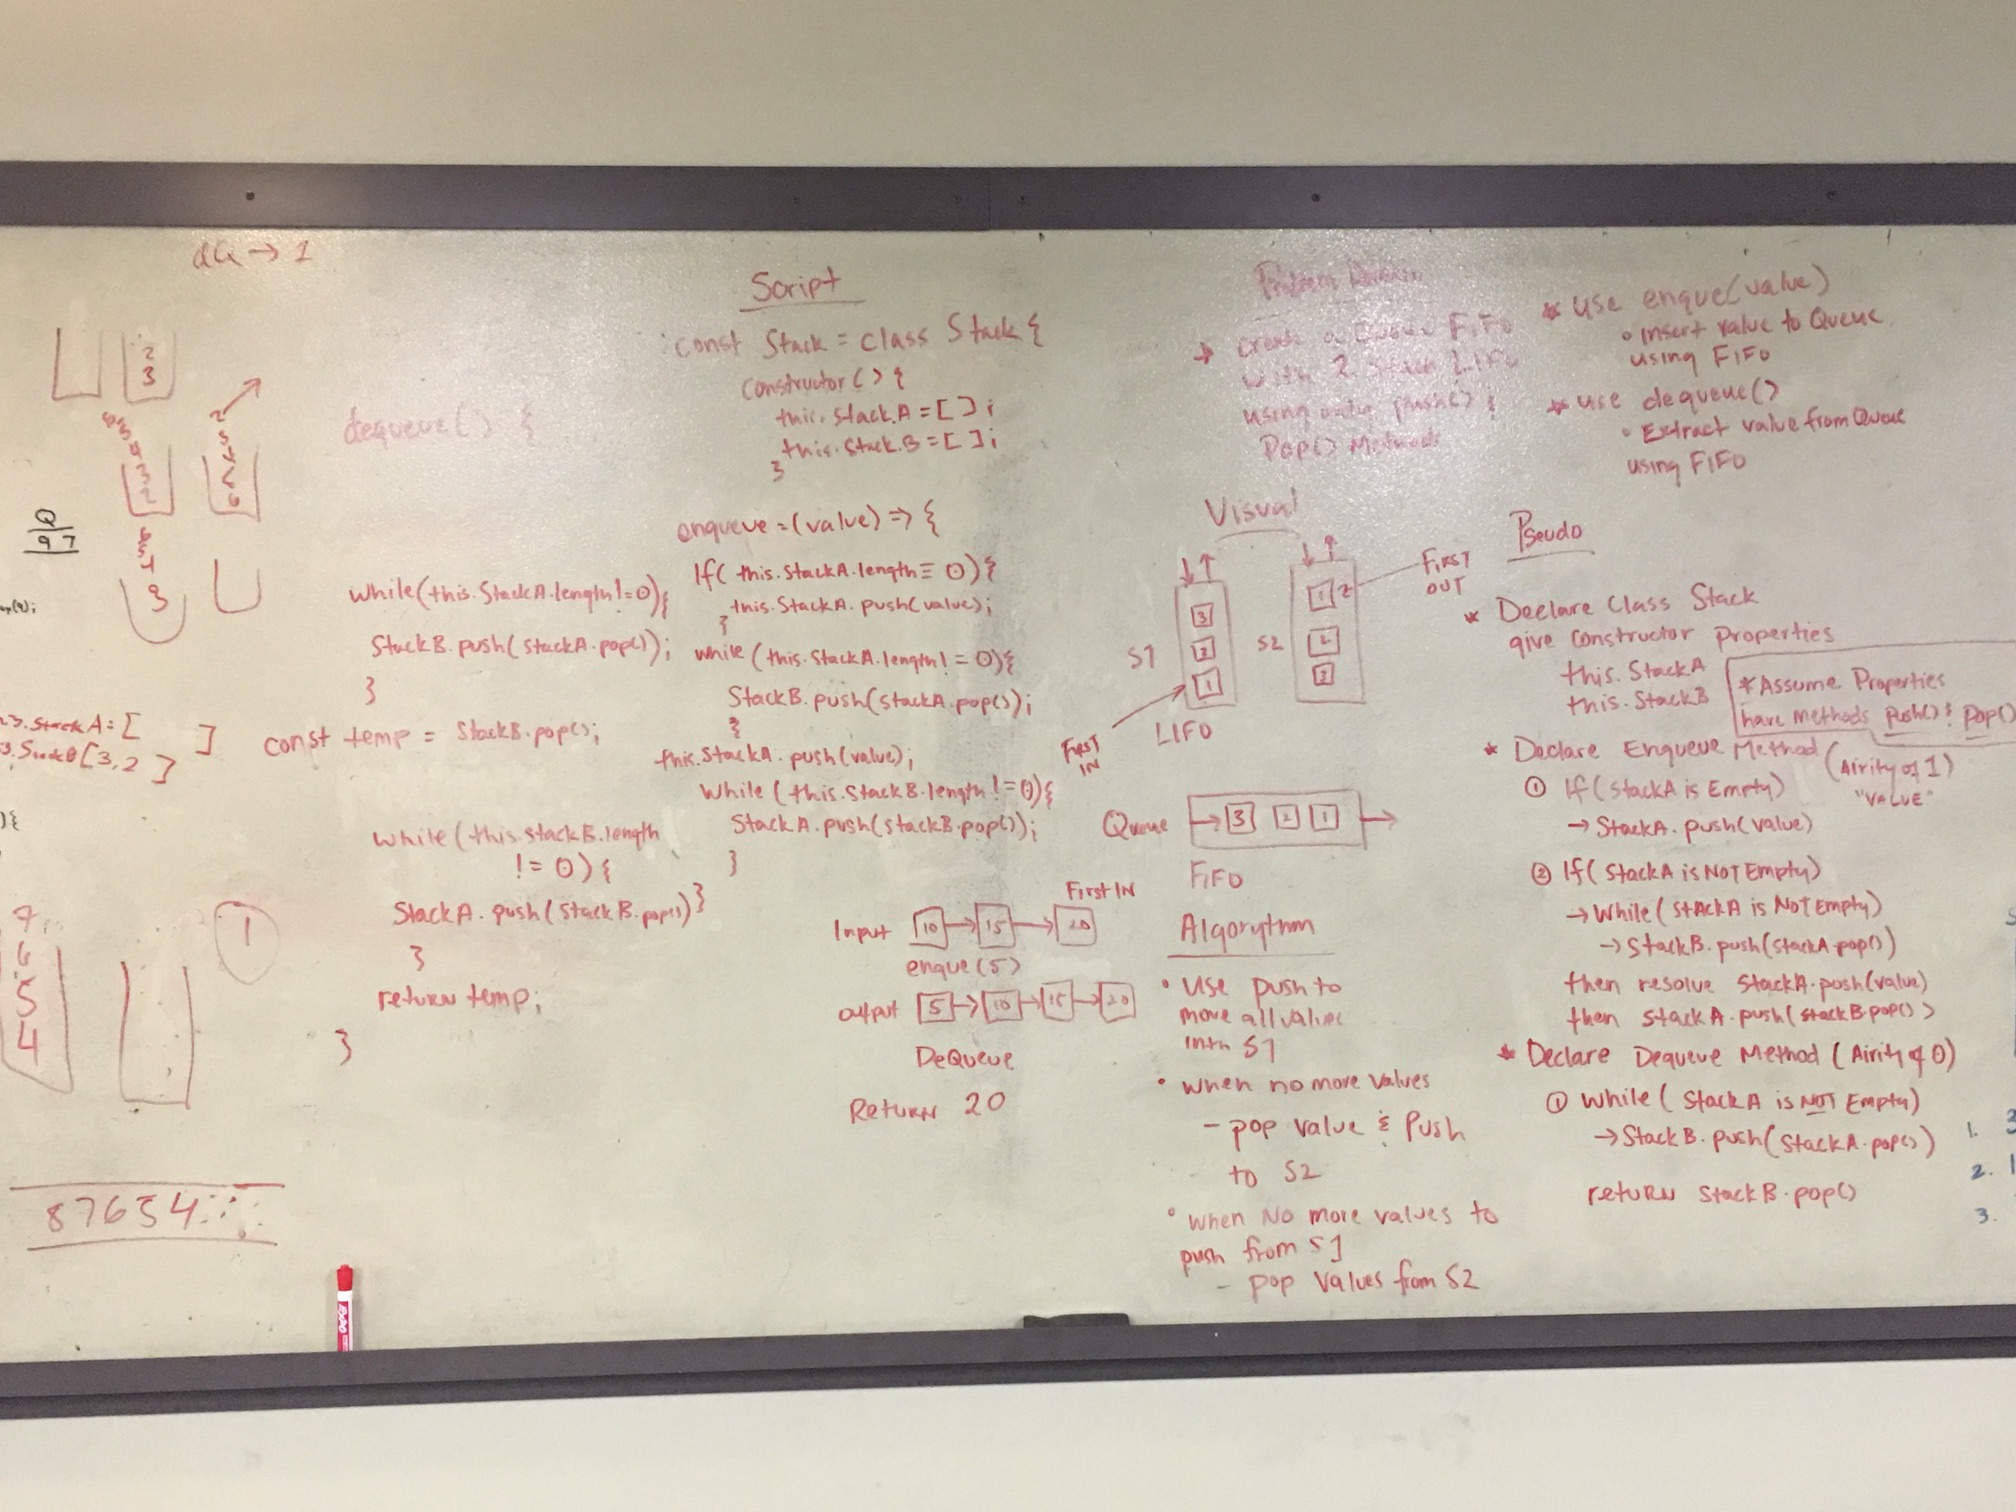 dQ → 1
2
3
Q
97
3
]
[3, 2 ]
) {
7
6
5
4
1
87654
dequeue() {
while(this.StackA.length != 0){
StackB.push(stackA.pop());
}
const temp = StackB.pop();
while(this.stackB.length
!= 0) {
StackA.push(stackB.pop())}
}
return temp;
}
Script
const Stack = class Stack {
Constructor() {
this.Stack.A = [ ];
this.Stack.B = [ ];
}
enqueue = (value) => {
If( this.StackA.length = 0) {
this.StackA.push(value);
}
while (this.StackA.length != 0){
StackB.push(stackA.pop());
}
this.StackA.push(value);
while (this.StackB.length != 0){
StackA.push(stackB.pop());
}
First IN
Input 10 → 15 → 20
enque(5)
output 5 → 10 → 15 → 20
DeQueue
Return 20
Problem Domain
→ Create a Queue FIFO
with 2 Stack LIFO
using only push() &
Pop() Methods
* use enque(value)
• Insert value to Queue
using FIFO
* use dequeue()
• Extract value from Queue
using FIFO
Visual
S1
3
2
1
LIFO
FIRST
IN
S2
1
2
FIRST
OUT
Queue → 3 2 1 →
FIFO
Algorythm
• Use push to
move all values
into S1
• when no more values
- pop value & Push
to S2
• when No more values to
push from S1
- pop values from S2
Pseudo
* Declare Class Stack
give constructor properties
this.StackA
this.StackB
* Assume Properties
have methods push() & pop()
* Declare Enqueue Method (Airity of 1)
"VALUE"
① If (stackA is Empty)
→ StackA.push(value)
② If( StackA is NOT Empty)
→ While( StAckA is NOT Empty)
→ StackB.push(stackA.pop())
then resolve StackA.push(value)
then stackA.push(stackB.pop())
* Declare Dequeue Method (Airity of 0)
① While( StackA is NOT Empty)
→ StackB.push(StackA.pop())
return stackB.pop()
1. 3
2. 1
3.